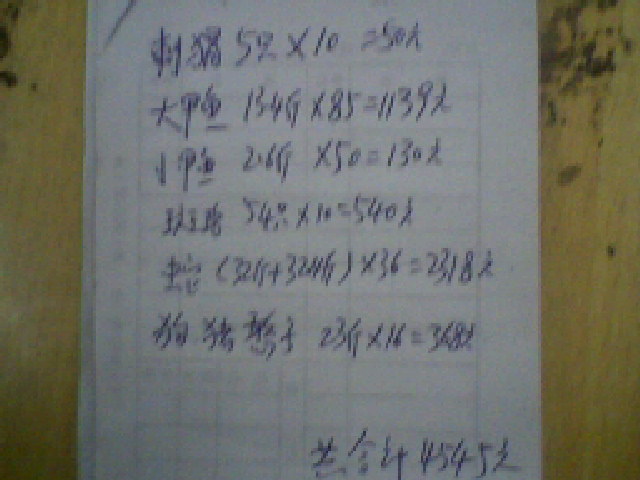 刺猬 5只×10=50元
大甲鱼 13.4斤×85=1139元
小甲鱼 2.6斤×50=130元
54只×10=540元
(32斤+32.4斤)×36=2318元
23斤×16=368元
共合计4545元